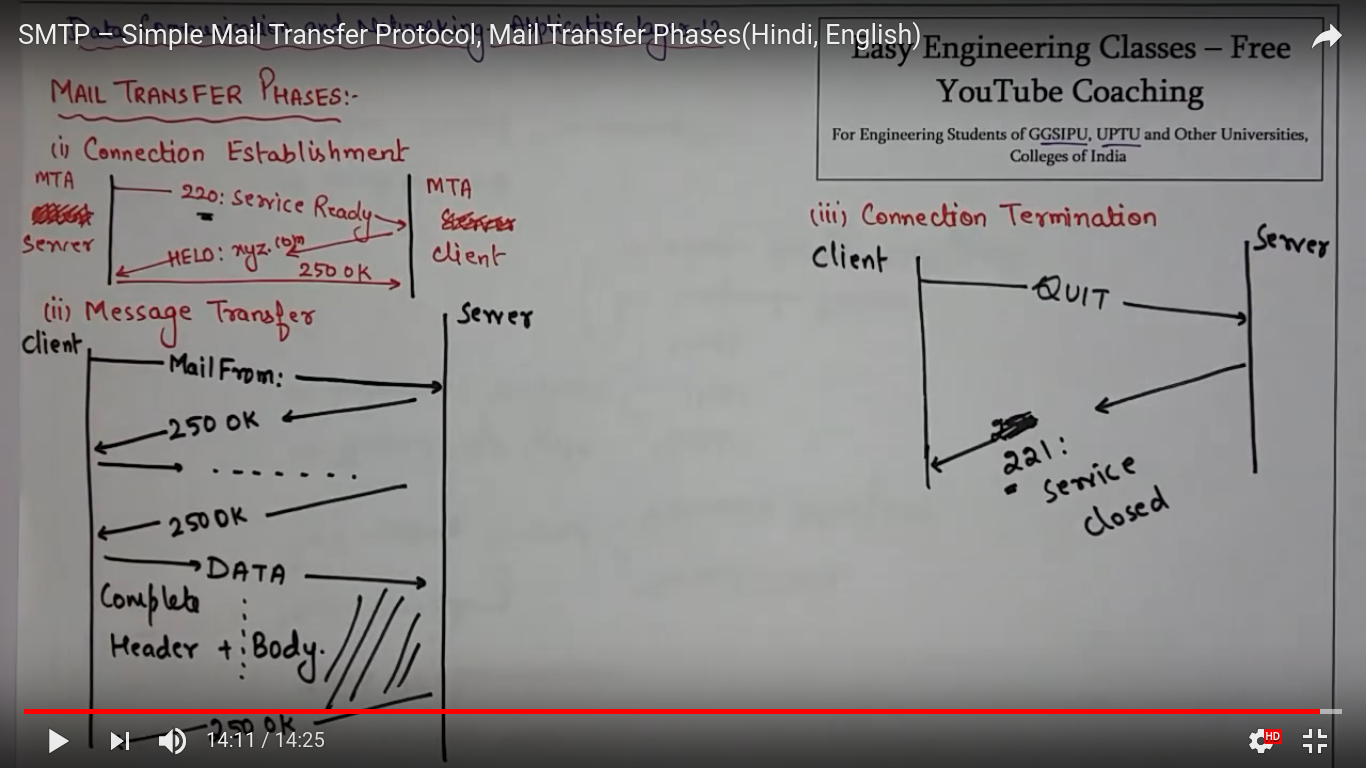 SMTP – Simple Mail Transfer Protocol, Mail Transfer Phases(Hindi, English)
Data Communication and Networking - Application layer-12
Easy Engineering Classes – Free
YouTube Coaching
For Engineering Students of GGSIPU, UPTU and Other Universities,
Colleges of India
MAIL TRANSFER PHASES:-
(i) Connection Establishment
MTA
Server
220: Service Ready
HELO: xyz.com
250 OK
MTA
Client
(ii) Message Transfer
Client
Server
Mail From:
250 OK
. - - - - - .
250 OK
DATA
Complete
Header + Body.
250 OK
(iii) Connection Termination
Client
Server
QUIT
221:
Service
closed
14:11 / 14:25
HD